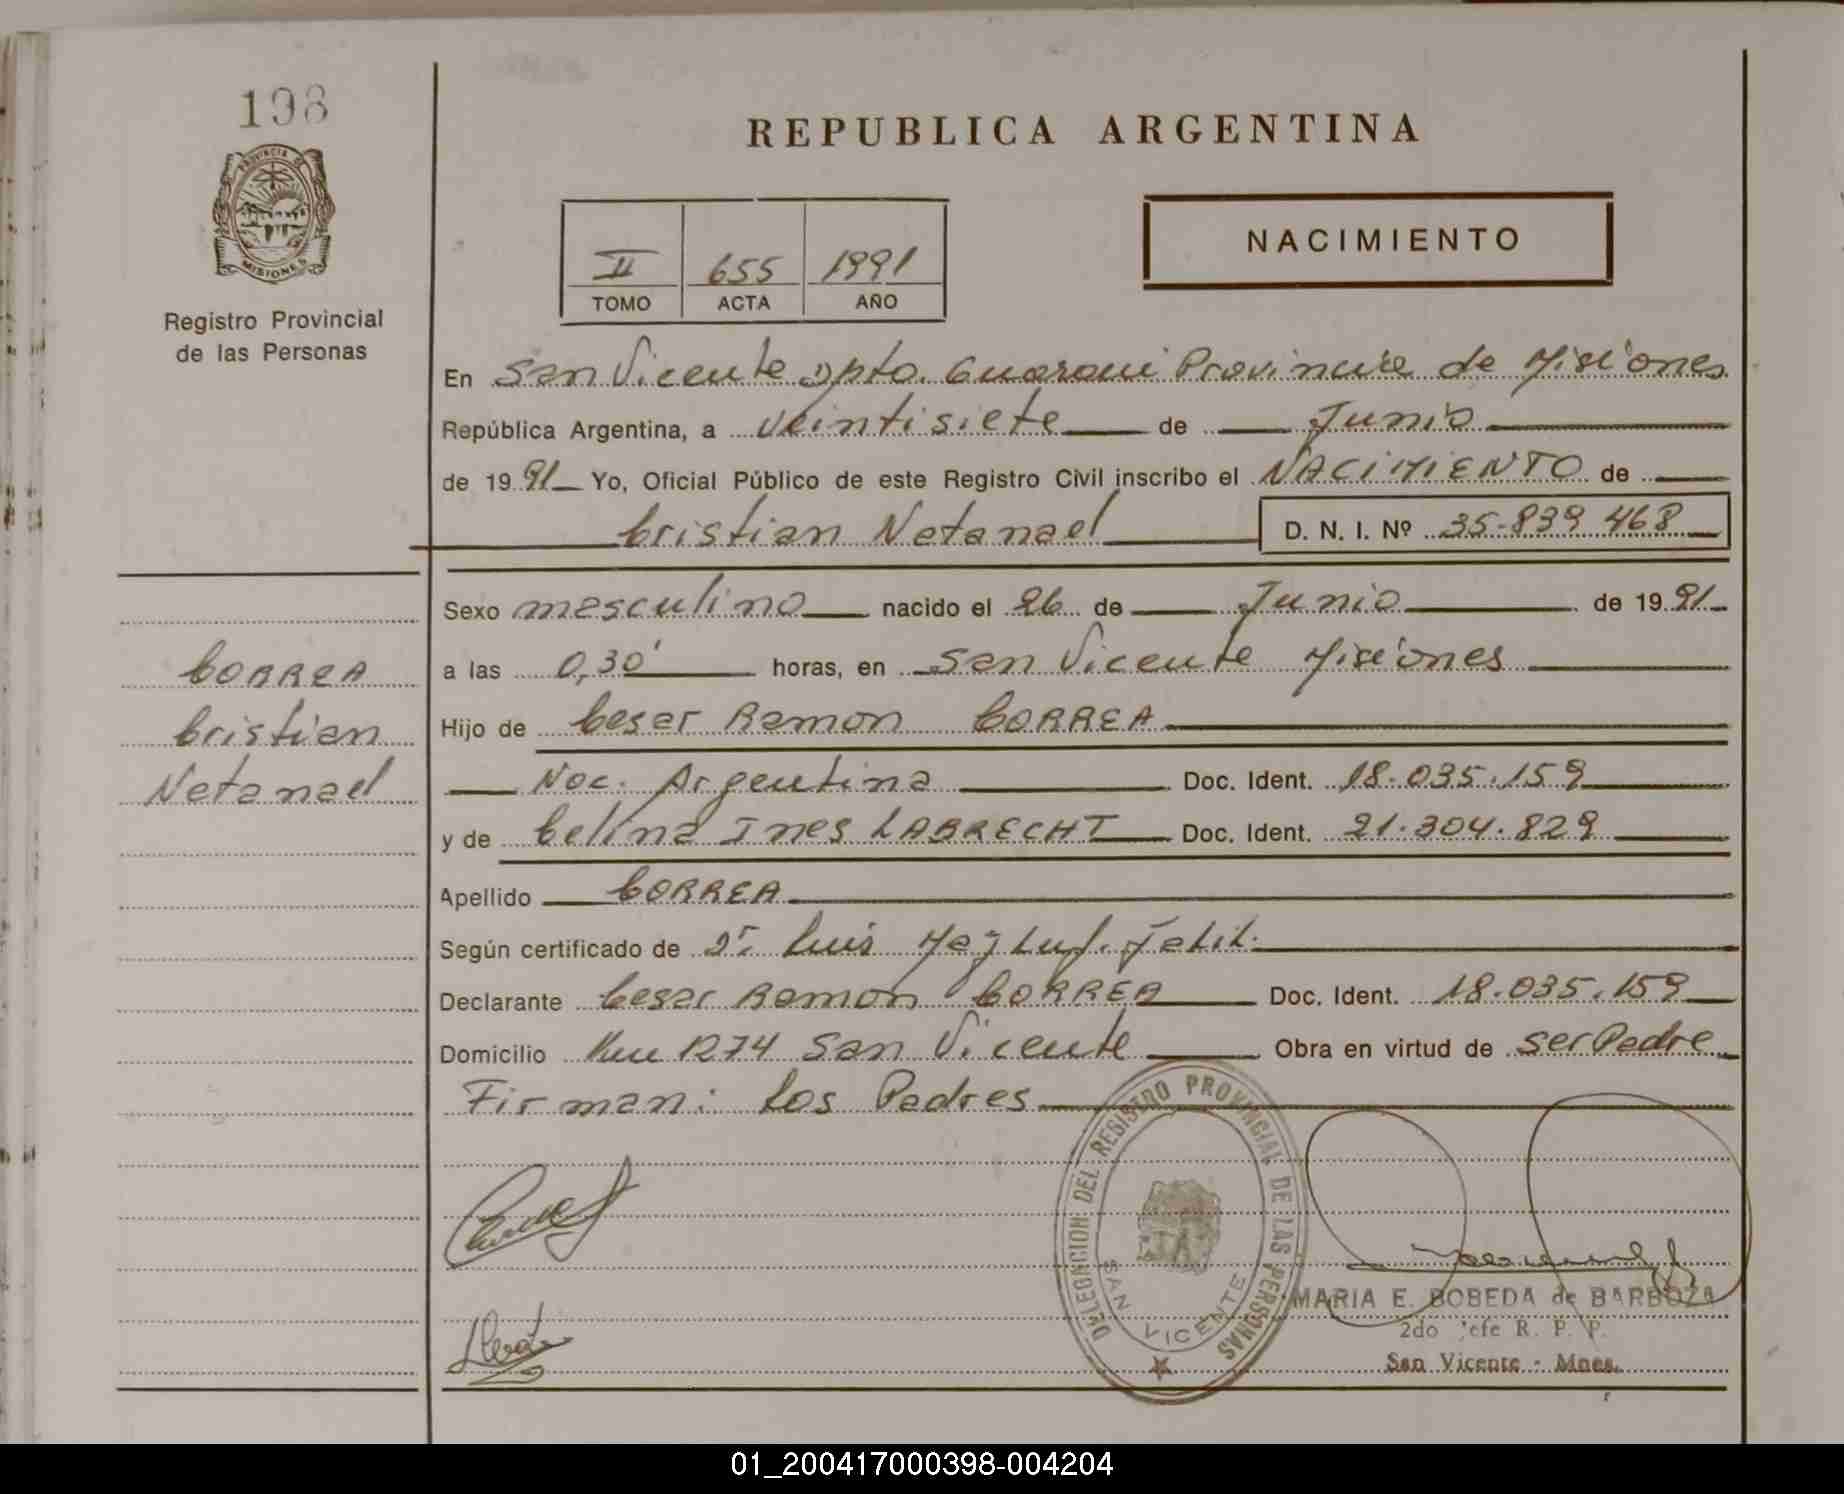 198
PROVINCIA DE
MISIONES
Registro Provincial
de las Personas
REPUBLICA ARGENTINA
II 655 1991
TOMO ACTA AÑO
NACIMIENTO
En San Vicente Dpto. Guarani Provincia de Misiones
República Argentina, a veintisiete de Junio
de 19 91 Yo, Oficial Público de este Registro Civil inscribo el NACIMIENTO de
Cristian Natanael D. N. I. Nº 35-839 468
Sexo masculino nacido el 26 de Junio de 19 91
a las 0,30' horas, en San Vicente Misiones
Hijo de Cesar Ramon CORREA
Nac. Argentina Doc. Ident. 18.035.159
y de Celina Ines LABRECHT Doc. Ident. 21.304.829
Apellido CORREA
Según certificado de Dr. Luis
Declarante Cesar Ramon CORREA Doc. Ident. 18.035.159
Domicilio Km 1274 San Vicente Obra en virtud de ser Padre
Firman: Los Padres
CORREA
Cristian
Natanael
DELEGACION DEL REGISTRO PROVINCIAL DE LAS PERSONAS
SAN VICENTE
MARIA E. BOBEDA de BARBOZA
2do Jefe R. P. P.
San Vicente - Mnes.
01_200417000398-004204